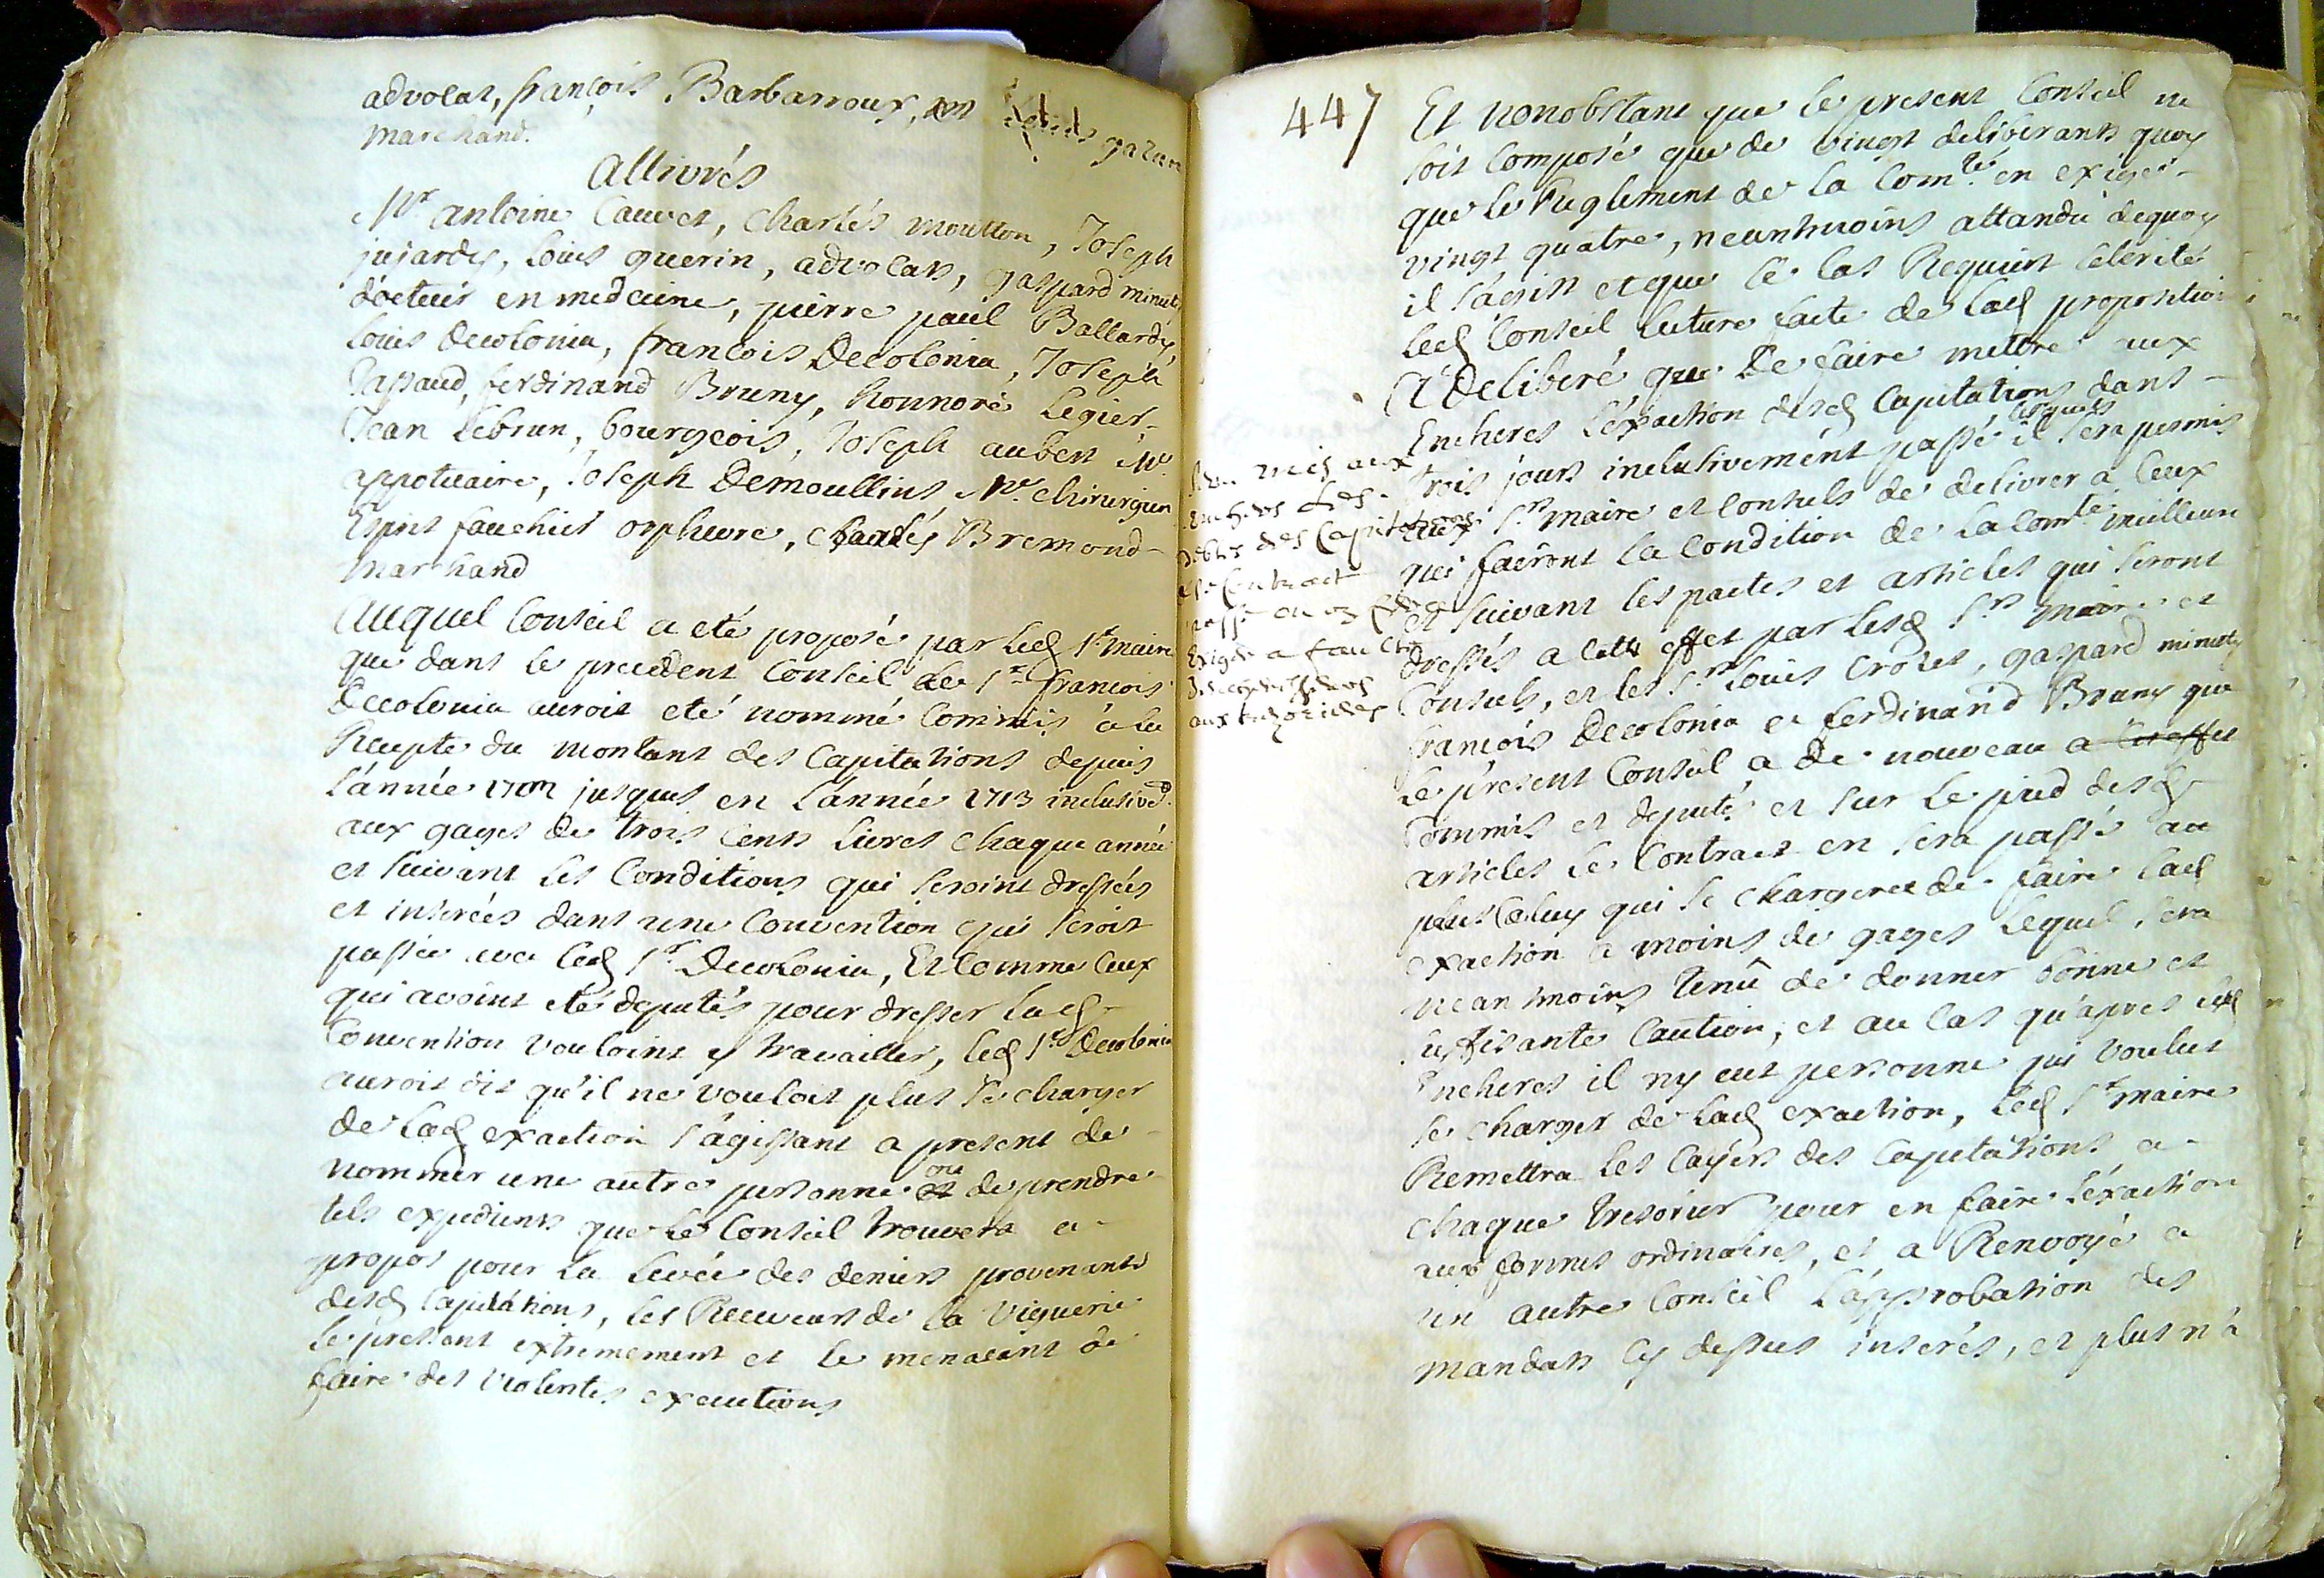 advocat, françois Barbarroux,
marchand.
Allivrés
Mr antoine Cauvet, Charles moutton, Joseph
jujardy, louis querin, advocats, gaspard minuty
docteur en medecine, pierre paul Ballardy,
louis Decolonia, francois Decolonia, Joseph
ferdinand Bruny, honnoré Legier
Jean Lebrun, bourgeois, Joseph aubert Me
appoticaire, Joseph Demoullins Me chirurgien
Esprit fauchier orphevre, Charles Bremond
marchand
Auquel Conseil a eté proposé par led sr maire
que dans le precedent Conseil le sr francois
Decolonia auroit eté nommé Commis a la
Recepte du montant des Capitations depuis
l'année jusques en l'année 1713 inclusivemt
aux gages de trois cents livres chaque année
et suivant les Conditions qui seroint dressées
et inserées dans une Convention qui seroit
passée avec led sr Decolonia, Et Comme Ceux
qui avoint eté deputés pour dresser lad
Convention vouloint y travailler, led sr Decolonia
auroit dit qu'il ne vouloit plus se charger
de lad exaction s'agissant a present de
nommer une autre personne ou de prendre
tels expediens que le Conseil trouvera a
propos pour la levée des deniers provenants
desd Capitations, les Receveurs de la viguerie
le pressant extremement et le menacant de
faire des violentes executions
447
Et nonobstant que le present Conseil ne
soit Composé que de vingt deliberants quoy
que le Reglement de la Comté en exige
vingt quatre, neantmoins attandu dequoy
il s'agist et que le Cas Requiert Celerité
led Conseil lecture faite de lad proposition
A Deliberé que de faire mettre aux
Encheres l'exaction desd Capitations dans
trois jours inclusivement passé lesquels il sera permis
aux srs maire et Consuls de delivrer a Ceux
qui fairont la Condition de la Comté meilleure
et suivant les pactes et articles qui seront
dressés a Cette effet par lesd srs maire et
Consuls, et les srs louis Crozet, gaspard minuty
francois Decolonia et ferdinand Bruny que
le present Conseil a de nouveau a Cet effet
Commis et deputés et sur le pied desd
articles le Contract en sera passé au
plus Celuy qui se chargeree de faire lad
exaction a moins de gages lequel sera
neanmoins tenu de donner bonne et
suffisante Caution, et au Cas qu'apres lesd
Encheres il ny eut personne qui voulut
se charger de lad exaction, led sr maire
Remettra les Cayers des Capitations a
chaque tresorier pour en faire l'exaction
aux formes ordinaires, et a Renvoyé a
un autre Conseil l'approbation des
mandats Cy dessus inserés, et plus n'a
mis aux
Encheres les
debtes des Capitations
Contract
passé
Exiger a faute
d'encherisseurs
aux tresoriers